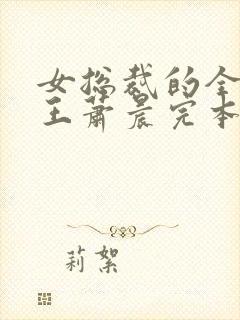 女总裁的全
王萧晨完本
莉絮